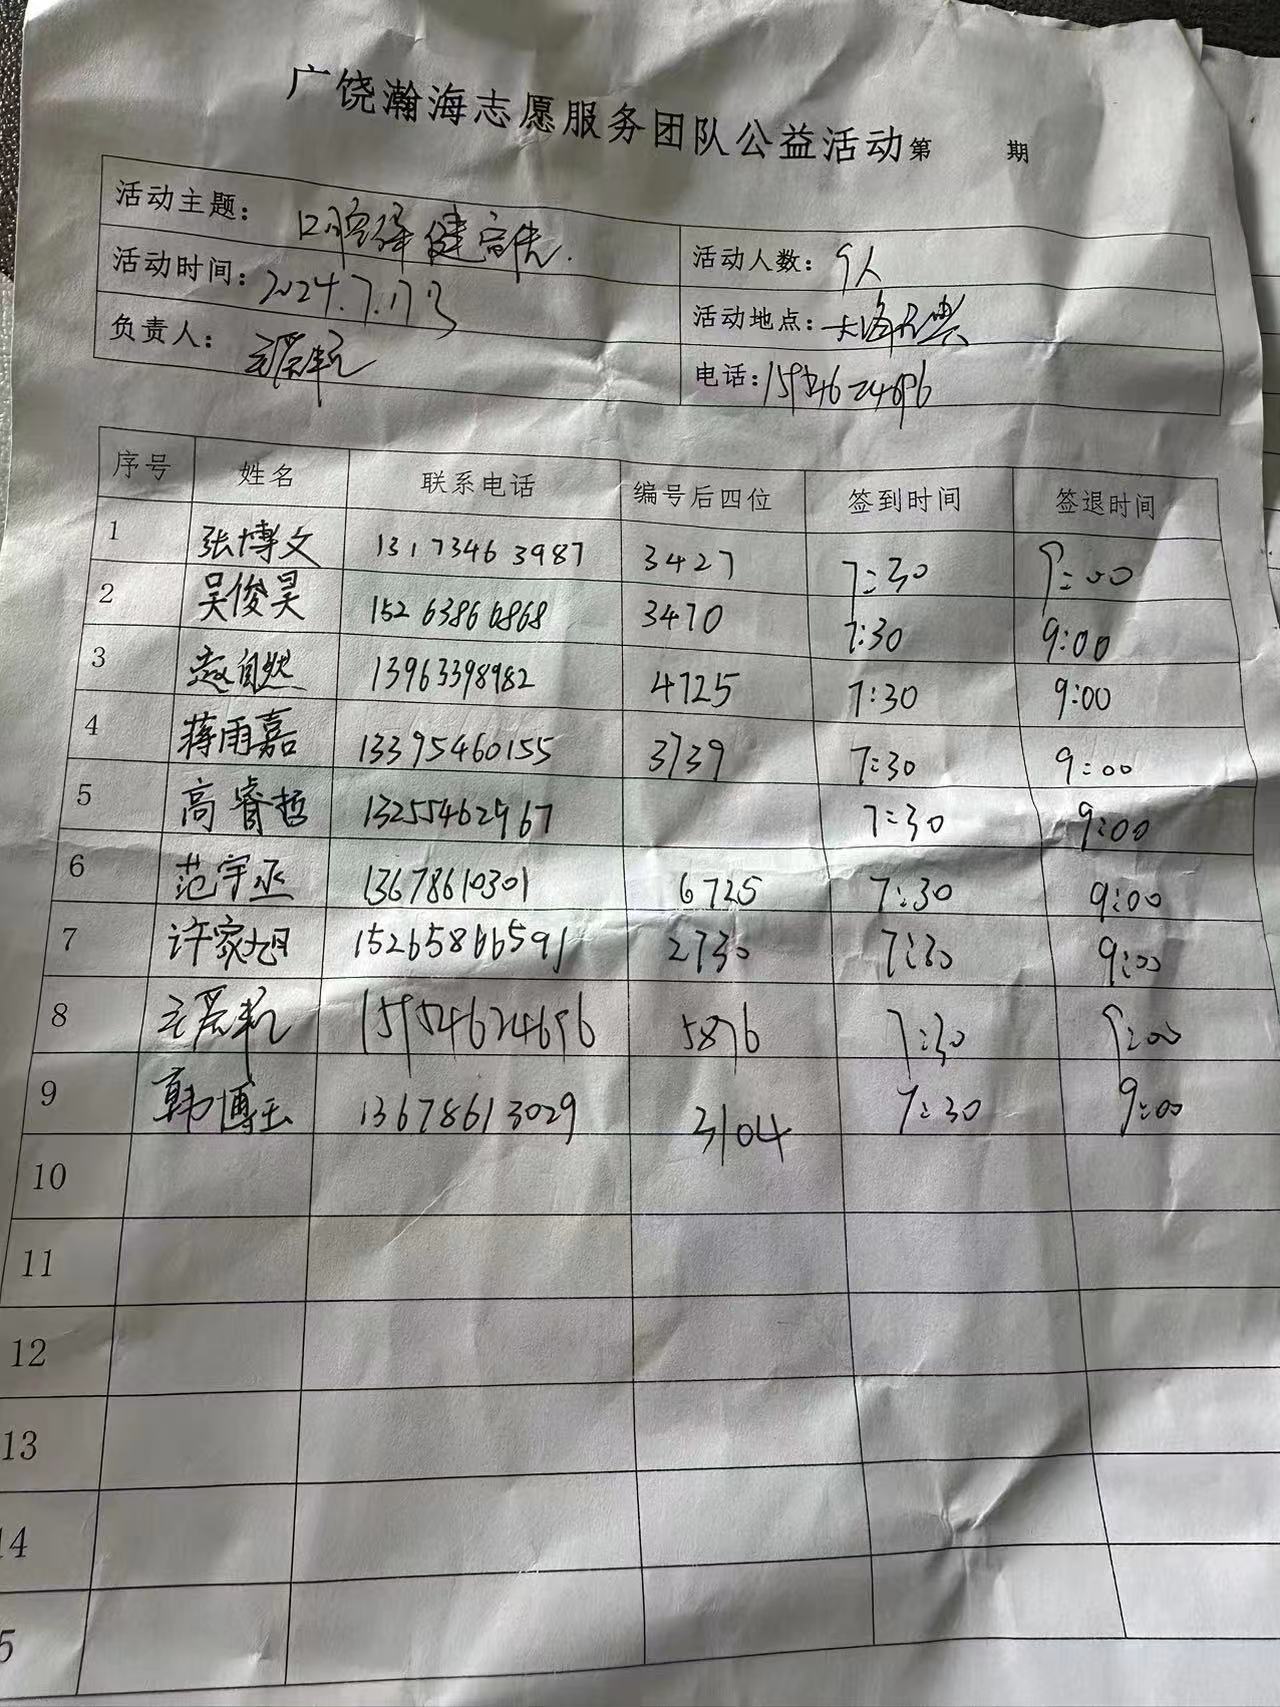 广饶瀚海志愿服务团队公益活动第 期
活动主题： 口腔保健宣传.
活动时间：2024.7.17 活动人数：9人
负责人： 活动地点：
电话：15954624696
序号 姓名 联系电话 编号后四位 签到时间 签退时间
1 张博文 13173463987 3427 7:30 9:00
2 吴俊昊 15263860868 3470 7:30 9:00
3 赵自然 13963398982 4725 7:30 9:00
4 蒋雨嘉 13395460155 3739 7:30 9:00
5 高睿哲 13255462967 7:30 9:00
6 范宇丞 13678610301 6725 7:30 9:00
7 许家旭 15265866591 2730 7:30 9:00
8 15954624696 5876 7:30 9:00
9 韩博玉 13678613029 3104 7:30 9:00
10
11
12
13
14
5